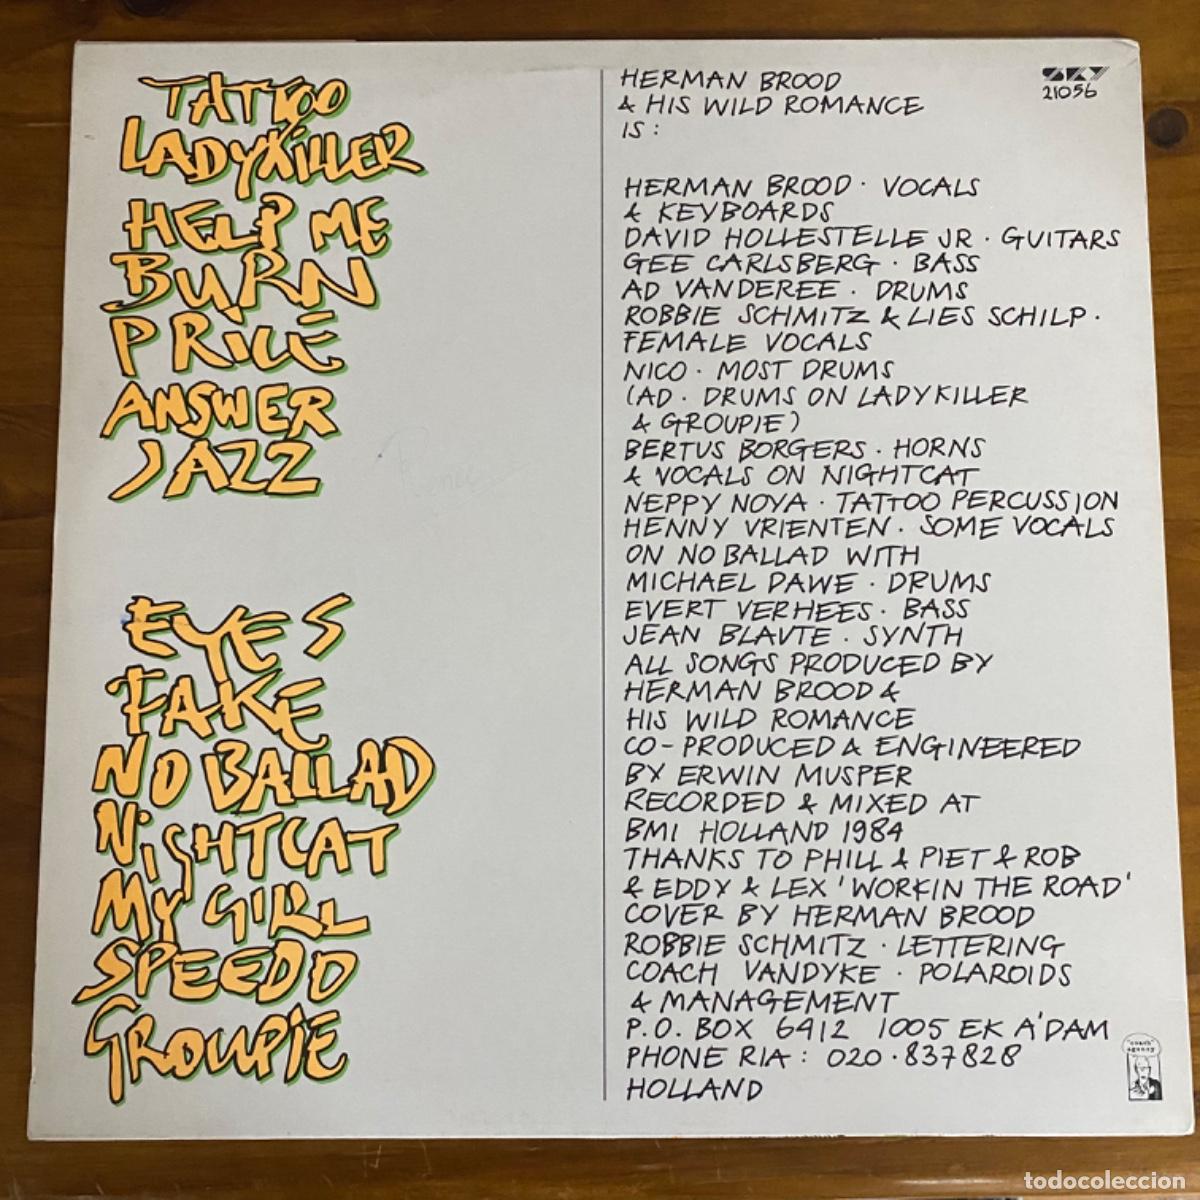 TATTOO
LADYKILLER
HELP ME
BURN
PRICE
ANSWER
JAZZ
EYES
FAKE
NO BALLAD
NIGHTCAT
MY GIRL
SPEEDO
GROUPIE
HERMAN BROOD
& HIS WILD ROMANCE
IS :
SKY
21056
HERMAN BROOD · VOCALS
& KEYBOARDS
DAVID HOLLESTELLE JR · GUITARS
GEE CARLSBERG · BASS
AD VANDEREE · DRUMS
ROBBIE SCHMITZ & LIES SCHILP ·
FEMALE VOCALS
NICO · MOST DRUMS
(AD · DRUMS ON LADYKILLER
& GROUPIE)
BERTUS BORGERS · HORNS
& VOCALS ON NIGHTCAT
NEPPY NOYA · TATTOO PERCUSSION
HENNY VRIENTEN · SOME VOCALS
ON NO BALLAD WITH
MICHAEL DAWE · DRUMS
EVERT VERHEES · BASS
JEAN BLAUTE · SYNTH
ALL SONGS PRODUCED BY
HERMAN BROOD &
HIS WILD ROMANCE
CO-PRODUCED & ENGINEERED
BY ERWIN MUSPER
RECORDED & MIXED AT
BMI HOLLAND 1984
THANKS TO PHILL & PIET & ROB
& EDDY & LEX 'WORKIN THE ROAD'
COVER BY HERMAN BROOD
ROBBIE SCHMITZ · LETTERING
COACH VANDYKE · POLAROIDS
& MANAGEMENT
P.O. BOX 6412 1005 EK A'DAM
PHONE RIA : 020·837828
HOLLAND
"coach"
agency
todocoleccion